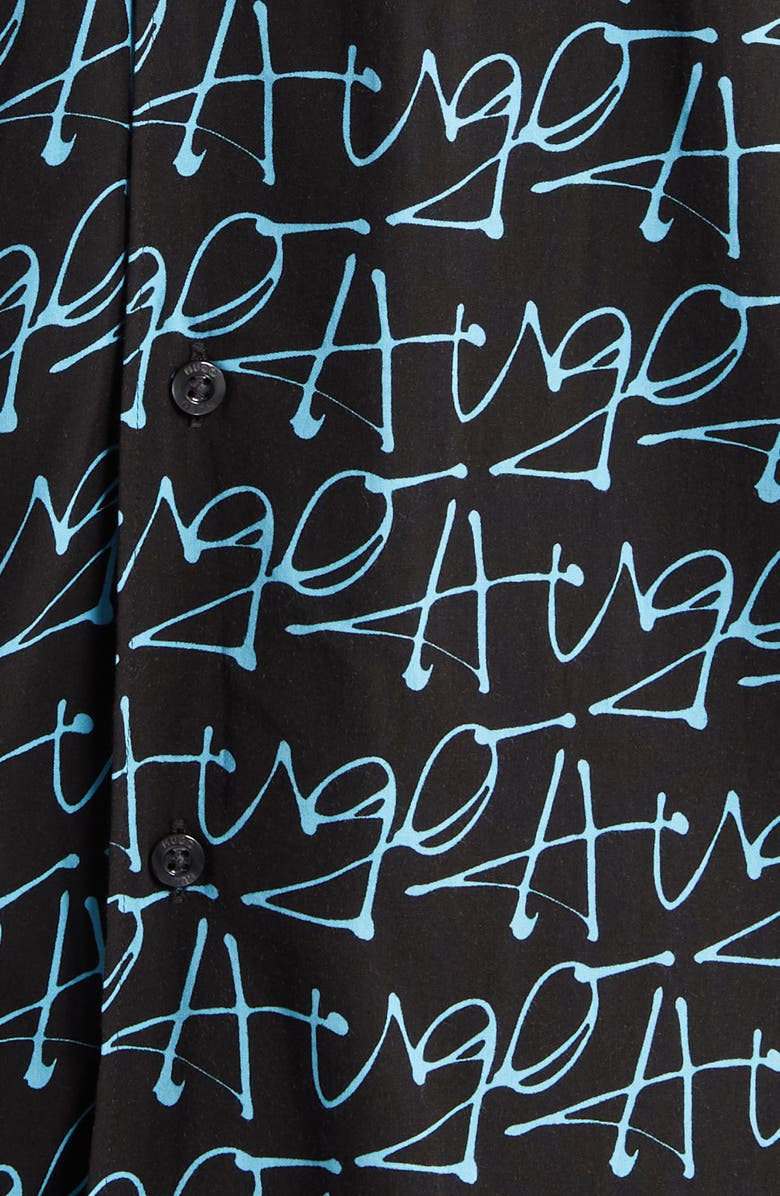 Hugo
Hugo
HUGO
Hugo
Hugo
Hugo
HUGO
Hugo